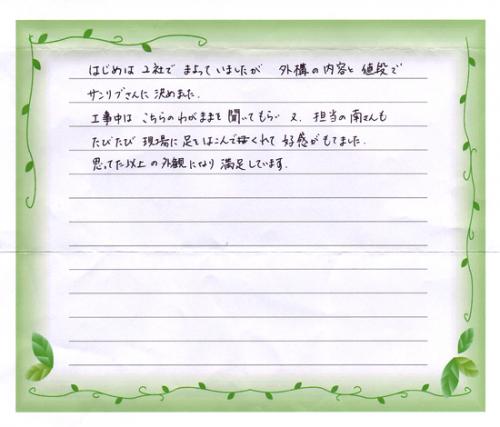 はじめは2社で まよっていましたが 外構の内容と値段で
サンリブさんに決めました.
工事中は こちらのわがままを聞いてもらい 又、担当の南さんも
たびたび 現場に足をはこんで くれて 好感がもてました.
思ってた以上の外観になり 満足しています.